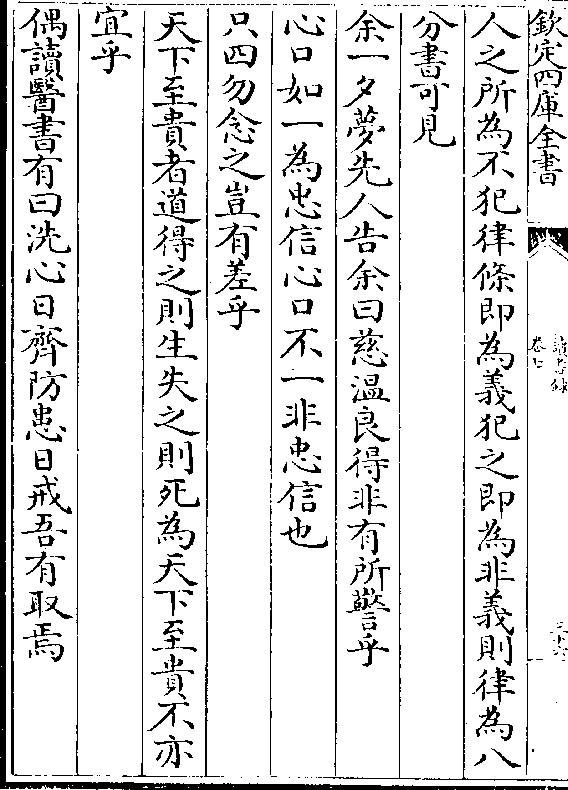 欽定四庫全書
讀書錄
卷七
三十六
人之所為不犯律條即為義犯之即為非義則律為八
分書可見
余一夕夢先人告余曰慈温良得非有所警乎
心口如一為忠信心口不一非忠信也
只四勿念之豈有差乎
天下至貴者道得之則生失之則死為天下至貴不亦
宜乎
偶讀醫書有曰洗心曰齊防患曰戒吾有取焉